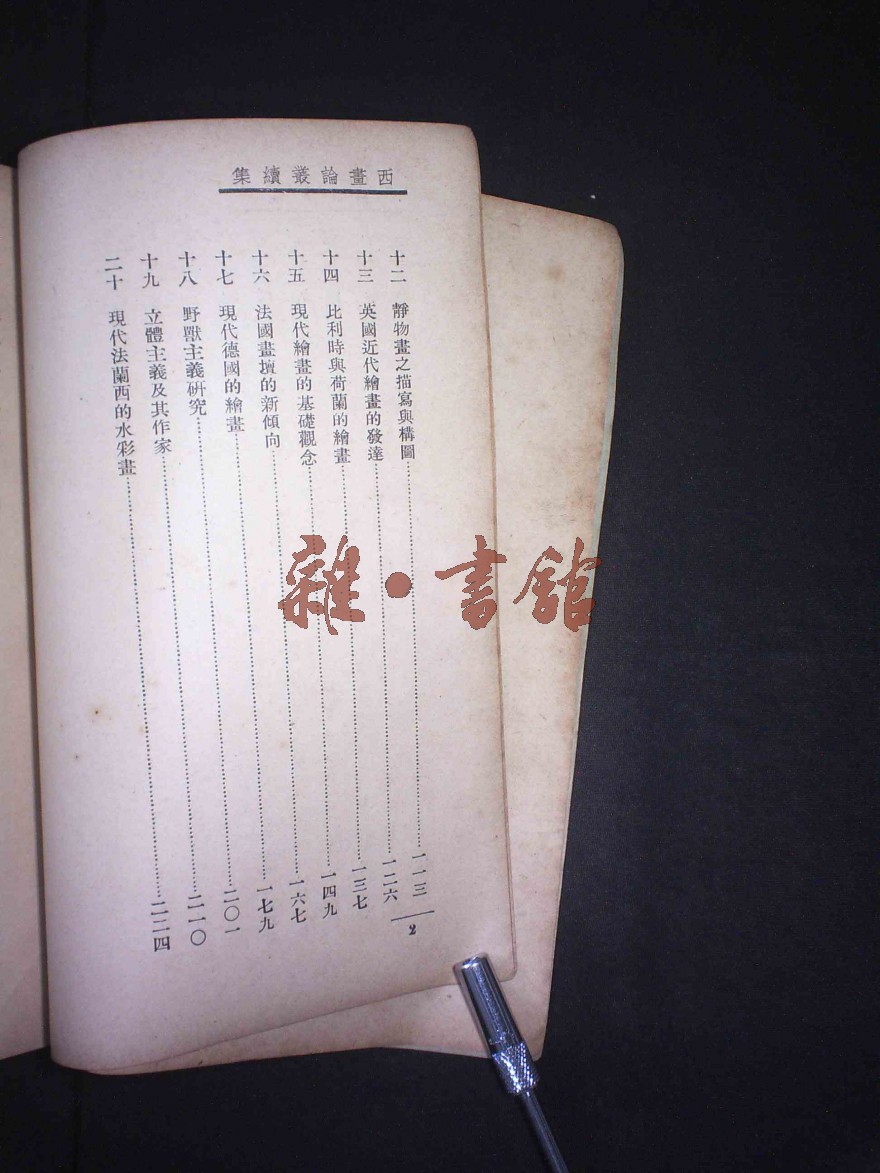 西畫論叢續集
十二 靜物畫之描寫與構圖……一一三
十三 英國近代繪畫的發達……一二六
十四 比利時與荷蘭的繪畫……一三七
十五 現代繪畫的基礎觀念……一四九
十六 法國畫壇的新傾向……一六七
十七 現代德國的繪畫……一七九
十八 野獸主義研究……二〇一
十九 立體主義及其作家……二一〇
二十 現代法蘭西的水彩畫……二二四
2
雜·書館